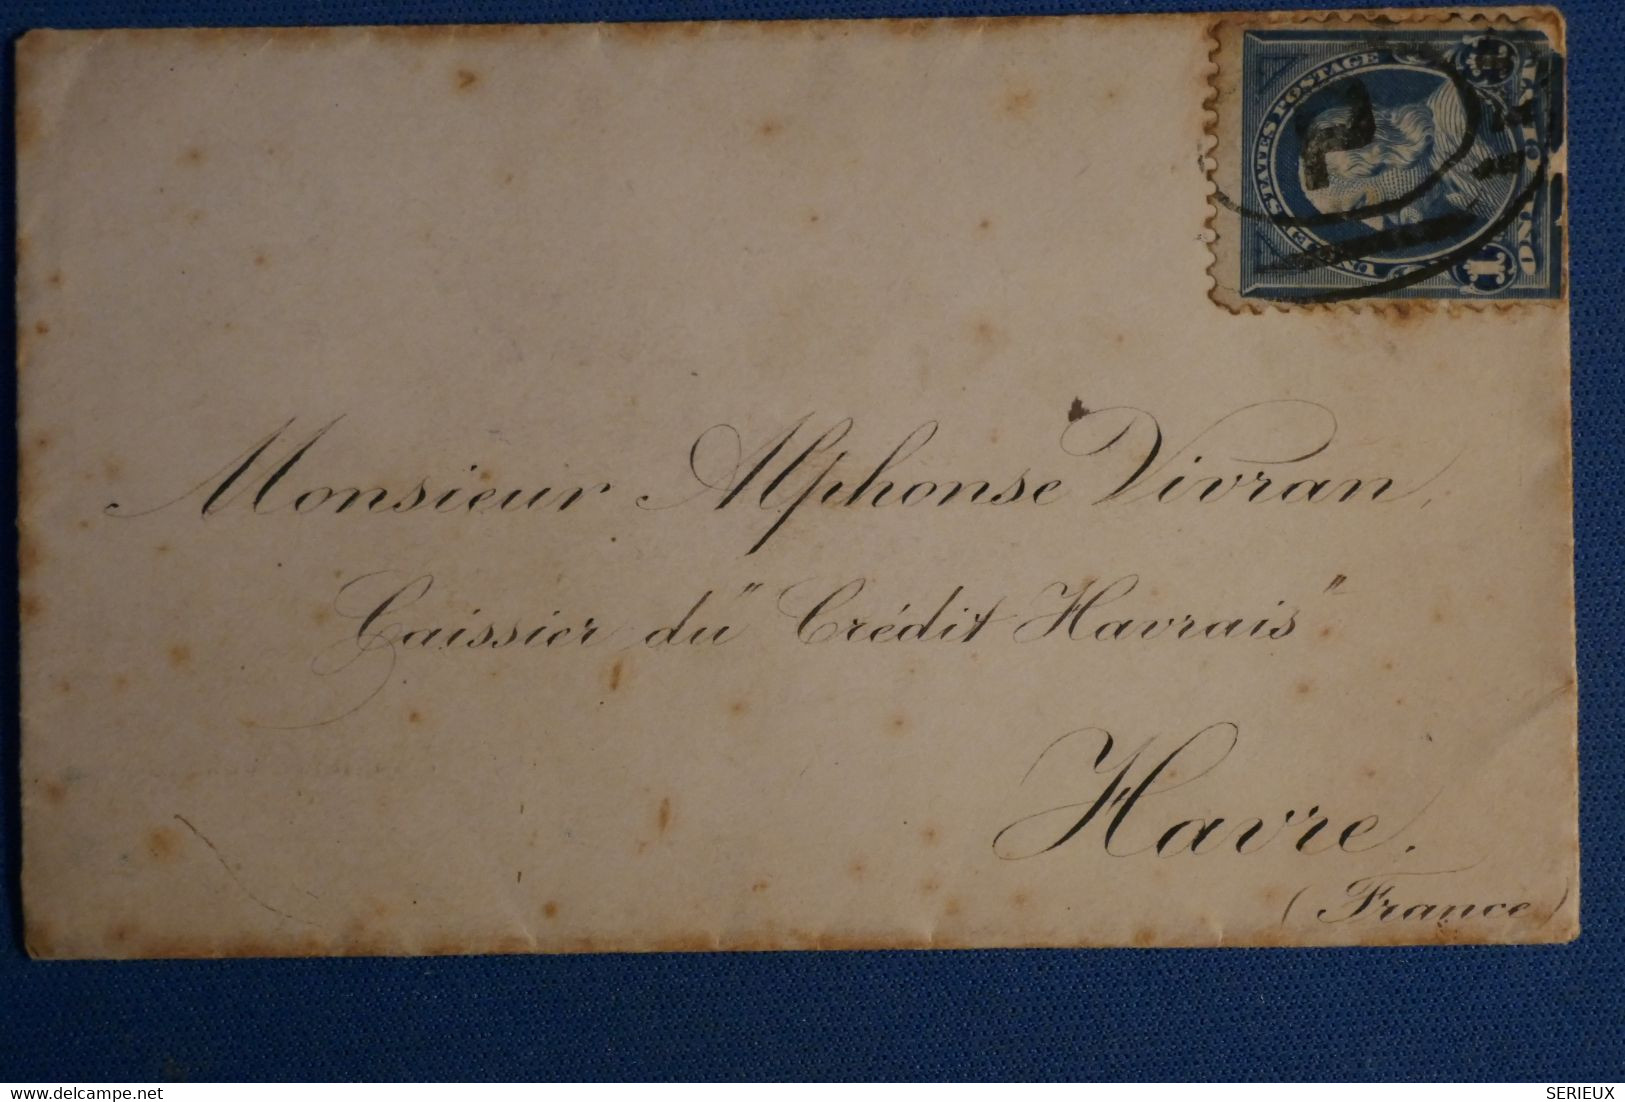 STATES POSTAGE
1
Monsieur Alphonse Vivran,
Caissier du "Crédit Havrais"
Havre.
(France)
www.delcampe.net
SERIEUX